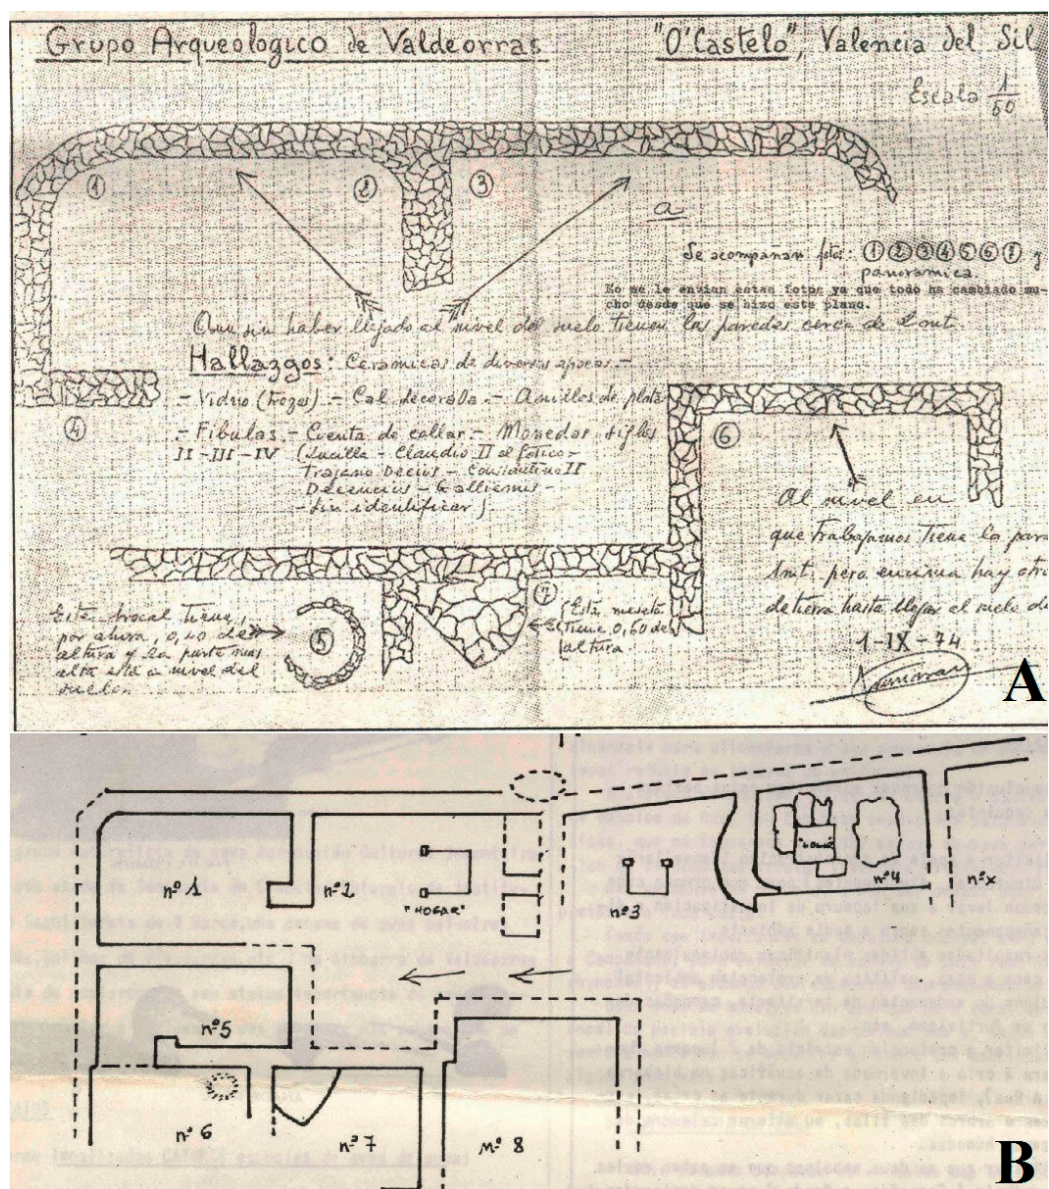 Grupo Arqueologico de Valdeorras "O'Castelo", Valencia del Sil
Escala 1/50
1 2 3
a
Se acompañan fotos: 1 2 3 4 5 6 7 y
panoramica.
No se le envian estas fotos ya que todo ha cambiado mu-
cho desde que se hizo este plano.
Aun sin haber llegado al nivel del suelo tienen las paredes cerca de 2 mt.
Hallazgos: Ceramicas de diversas epocas.-
- Vidrio (trozos) - Cal decorada - Anillos de plata
- Fibulas - Cuenta de collar - Monedas siglos
II-III-IV (Lucilla - Claudio II el Gotico -
Trajano Decius - Constantino II
Decencius - Gallienus -
- Sin identificar)
4 6
Al nivel en
que trabajamos tiene la pared
mt. pero encima hay otro
de tierra hasta llegar al suelo de
Este brocal tiene,
por ahora, 0,40 de
altura y la parte mas
alta esta a nivel del
suelo.
5
7
Esta meseta
tiene 0,50 de
altura.
1-IX-74
A
nº 1
nº 2
"HOGAR"
nº 3
nº 4
nº x
nº 5
nº 6
nº 7
nº 8
B